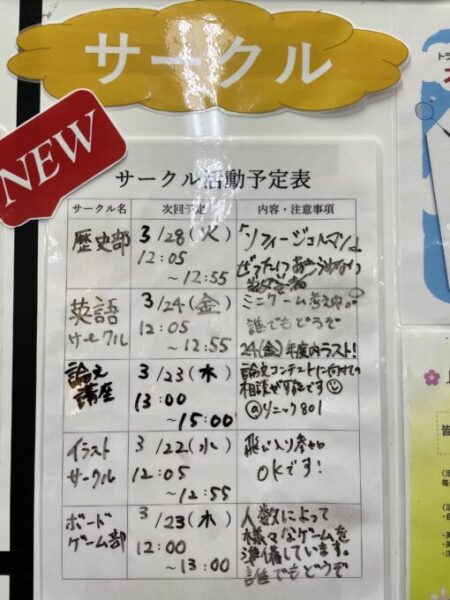 サークル
NEW
サークル活動予定表
サークル名 次回予定 内容・注意事項
歴史部 3/28(火) 12:05 ~12:55
「ソフィー・ジェルマン」
ぜったいにあきらめない
数学者
英語サークル 3/24(金) 12:05 ~12:55
ミニゲーム考え中。
誰でもどうぞ
24(金)年度内ラスト!
論文講座 3/23(木) 13:00 ~15:00
論文コンテストに向けての
相談が可能です
@リニック801
イラストサークル 3/22(水) 12:05 ~12:55
飛び入り参加
OKです!
ボードゲーム部 3/23(木) 12:00 ~13:00
人数によって
様々なゲームを
準備しています。
誰でもどうぞ
トラ
皆